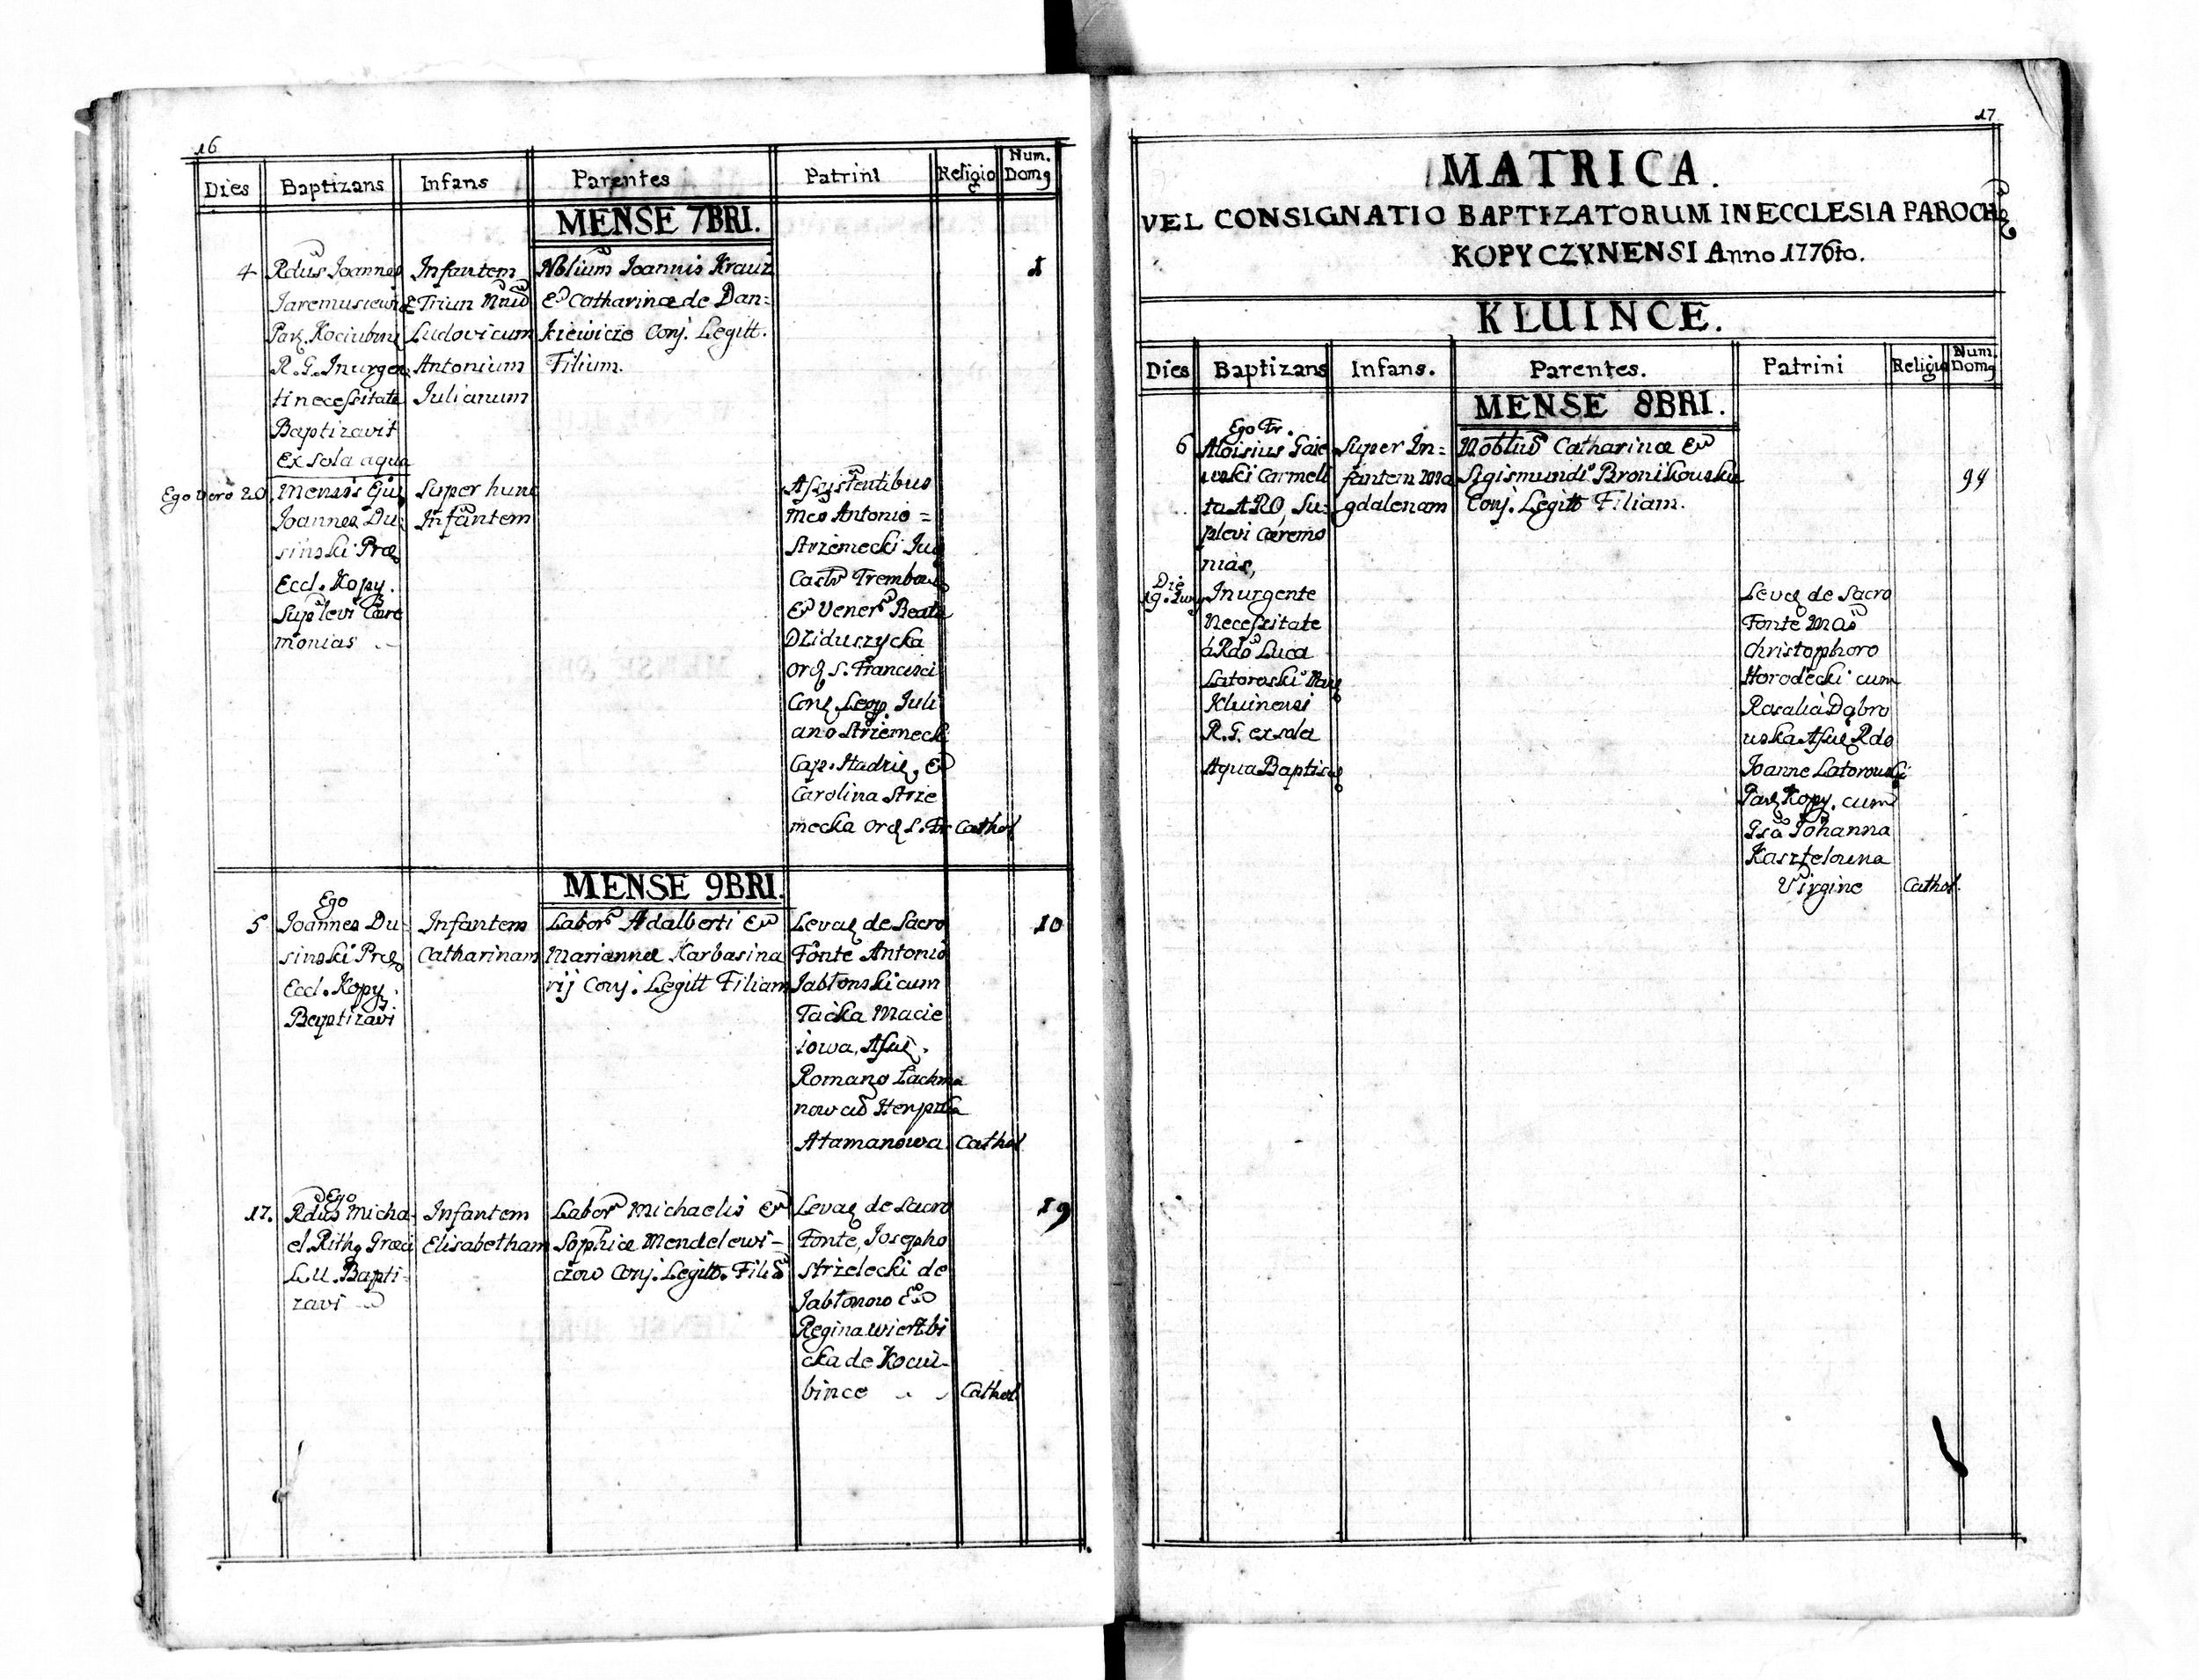 16
Dies Baptizans Infans Parentes Patrini Religio Num. Domg
MENSE 7BRI.
4
Rdus Joannes
Jaremusiewi
Par. Kociubinz
R. G. In urgen
ti necessitate
Baptizavit
ex sola aqua
Infantem
Trium Nnũ
Ludovicum
Antonium
Julianum
Nblium Joannis Krauz
Et Catharinæ de Dan=
kiewicze Conj. Legitt.
Filium.
1
Ego vero 20.
mensis Ejus
Joannes Du:
sinski Præ
Eccl. Kopy.
Suplevi Cære
monias
Super hunc
Infantem
Assistentibus
Mco Antonio =
Strzemecki Jud
Castr Trembow
Et Vener Beata
Dziduszycka
Ord S. Francisci
Conv Leop Juli
ano Strzemecki
Cap. Hadzie, Et
Carolina Strze
mecka Ord S. Fr
Cathol
MENSE 9BRI.
5
Ego
Joannes Du:
sinski Præ
Eccl. Kopy.
Baptizavi
Infantem
Catharinam
Labor Adalberti Et
Mariannæ Karbasina
rij Conj. Legitt Filiam
Levan de Sacro
Fonte Antonio
Jabłonski cum
Tacka Macie
iowa, Assis.
Romano Lachma
now cũ Henpuka
Atamanowa.
Cathol
10
17.
Ego
Rdus Micha
el Rithg Græci
L.U. Bapti-
zavi
Infantem
Elisabetham
Labor Michaelis Et
Sophiæ Mendelewi-
czow Conj. Legitt. Filiã
Levan de Sacro
Fonte, Josepho
Strzelecki de
Jabłonow Et
Regina Wierzbi
cka de Kociu-
bince
Cathol.
19
17
MATRICA.
VEL CONSIGNATIO BAPTIZATORUM IN ECCLESIA PAROCH
KOPYCZYNENSI Anno 1776to.
KLUINCE.
Dies Baptizans Infans. Parentes. Patrini Religio Num. Domg
MENSE 8BRI.
6
Ego Fr.
Aloisius Gaie
wski Carmeli
ta ARO, Su-
plevi Cæremo
nias,
Super In=
fantem Ma
gdalenam
Nobliũ Catharinæ Et
Sigismundi Bronikowsku
Conj. Legitt Filiam.
94
Die
19.
In urgente
Necessitate
à Rdo Luca
Latoroski Par
Kluinensi
R. G. ex sola
Aqua Baptisa
Levan de Sacro
Fonte Mco
Christophoro
Horodecki cum
Rosalia Dąbro
wska Assis Rdo
Joanne Latorowski
Par Kopy. cum
Gsa Johanna
Kasztelowna
Virgine
Cathol.